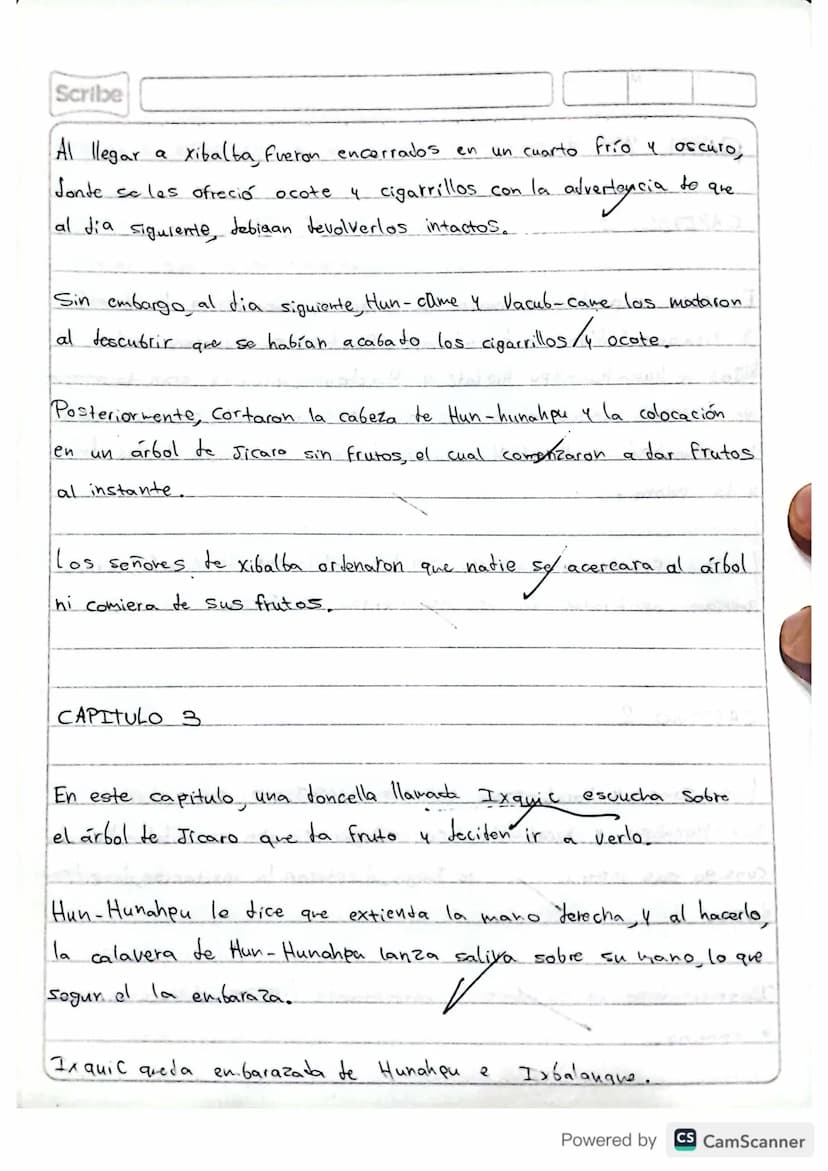 Scribe
Al llegar a xibalba, fueron encerrados en un cuarto frío y oscuro,
donde se les ofreció ocote y cigarrillos con la advertencia de que
al día siguiente, debiaan devolverlos intactos.
Sin embargo, al dia siguiente, Hun-came y Vacub-came los mataron
al descubrir que se habían acabado los cigarrillos y ocote.
Posteriormente, cortaron la cabeza de Hun-hunahpu y la colocación
en un árbol de Jicaro sin frutos, el cual comenzaron a dar frutos
al instante.
Los señores de xibalba ordenaron que nadie se acercara al árbol
ni comiera de sus frutos.
CAPITULO 3
En este capitulo, una doncella llamada Ixquic escucha sobre
el árbol de Jícaro que da fruto y deciden ir a verlo.
Hun-Hunahpu le dice que extienda la mano derecha, y al hacerlo,
la calavera de Hun-Hunahpu lanza saliva sobre su mano, lo que
segun el la embaraza.
Ixquic queda embarazada de Hunahpu e Ixbalanque.
Powered by CS CamScanner